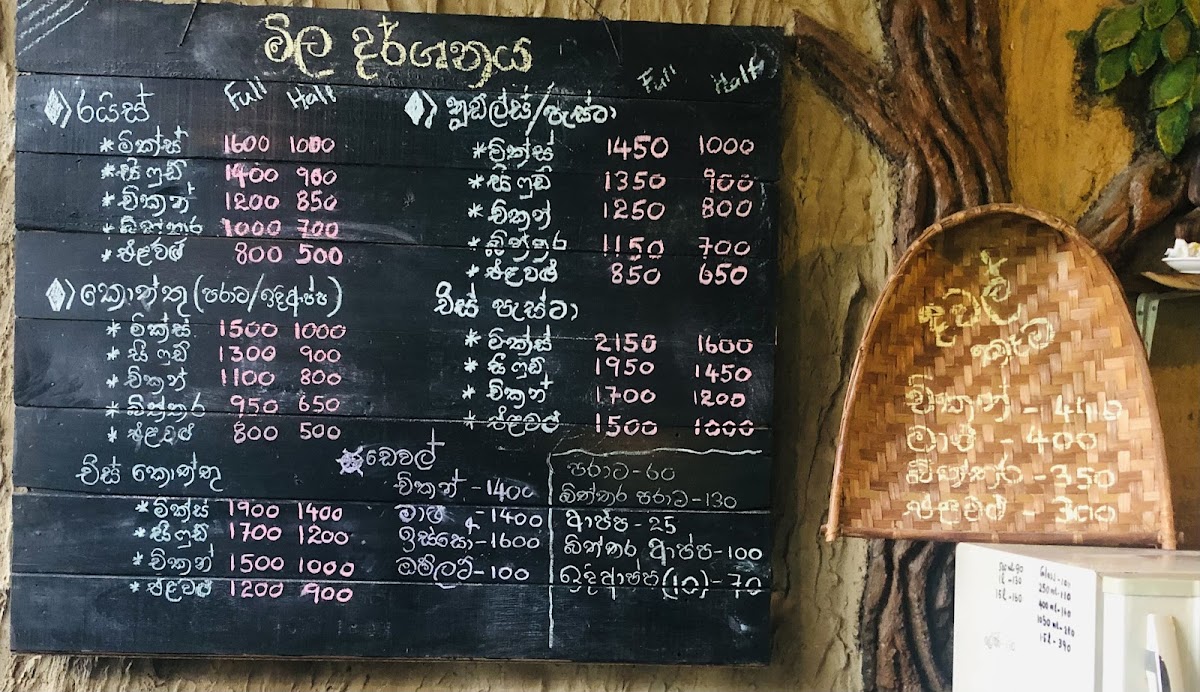 මිල දර්ශනය
Full Half
රයිස්
* මික්ස් 1600 1000
* සී ෆුඩ් 1400 900
* චිකන් 1200 850
* බිත්තර 1000 700
* එළවළු 800 500
කොත්තු (පරාට/ඉදිආප්ප)
* මික්ස් 1500 1000
* සී ෆුඩ් 1300 900
* චිකන් 1100 800
* බිත්තර 950 650
* එළවළු 800 500
චීස් කොත්තු
* මික්ස් 1900 1400
* සී ෆුඩ් 1700 1200
* චිකන් 1500 1000
* එළවළු 1200 900
Full Half
නූඩ්ල්ස්/පැස්ටා
* මික්ස් 1450 1000
* සී ෆුඩ් 1350 900
* චිකන් 1250 800
* බිත්තර 1150 700
* එළවළු 850 650
චීස් පැස්ටා
* මික්ස් 2150 1600
* සී ෆුඩ් 1950 1450
* චිකන් 1700 1200
* එළවළු 1500 1000
ඩෙවල්
චිකන් - 1400
මාළු - 1400
ඉස්සො - 1600
ඔම්ලට් - 100
පරාට - 60
බිත්තර පරාට - 130
ආප්ප - 25
බිත්තර ආප්ප - 100
ඉදිආප්ප (10) - 70
දවල්
කෑම
චිකන් - 440
මාළු - 400
බිත්තර - 350
එළවළු - 300
1L - 130
250 ml - 110
400 ml - 160
1050 ml - 290
1.5L - 390